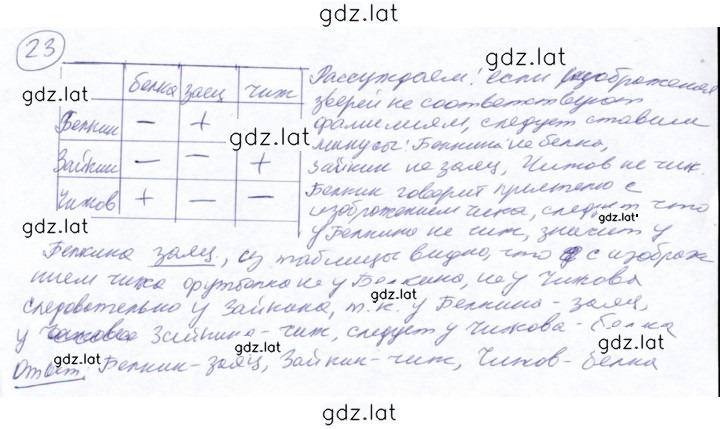 gdz.lat
23
белка заец чиж
Белкин - +
Зайкин - - +
Чижов + - -
gdz.lat
gdz.lat
gdz.lat
Рассуждаем! если изображения
зверей не соответствуют
фамилиям, следует ставим
минусы! Белкин не белка,
Зайкин не заец, Чижов не чиж.
Белкин говорит приятелю с
изображением чижа, следует что
gdz.lat
у Белкина не чиж, значит у
Белкина заец, из таблицы видно, что с изображе
нием чижа футболка не у Белкина, не у Чижова
gdz.lat
следовательно у Зайкина, т.к. у Белкина - заец,
у Зайкина - чиж, следует у Чижова - белка
gdz.lat
gdz.lat
Ответ. Белкин - заец, Зайкин - чиж, Чижов - белка
gdz.lat